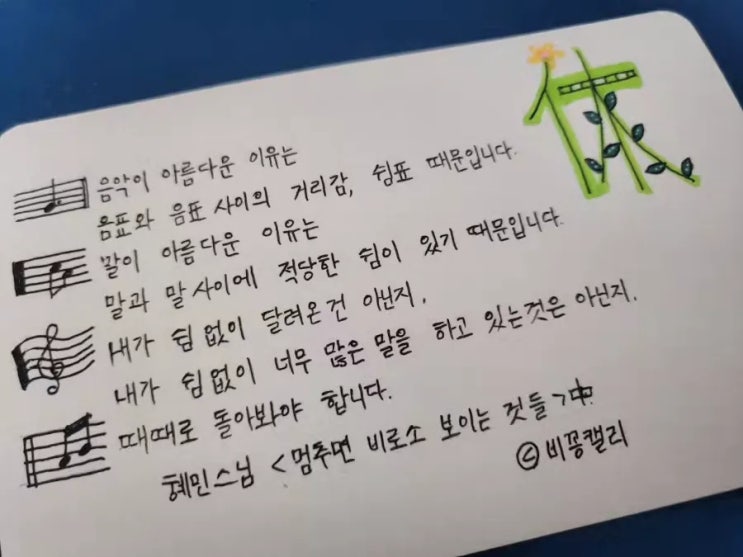 休
음악이 아름다운 이유는
음표와 음표 사이의 거리감, 쉼표 때문입니다.
말이 아름다운 이유는
말과 말 사이에 적당한 쉼이 있기 때문입니다.
내가 쉼 없이 달려온건 아닌지,
내가 쉼없이 너무 많은 말을 하고 있는것은 아닌지.
때때로 돌아봐야 합니다.
혜민스님 <멈추면 비로소 보이는 것들>中
ⓒ비꽁캘리